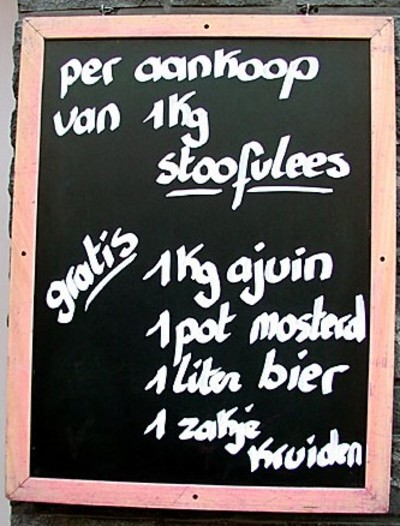 per aankoop
van 1Kg
stoofvlees
gratis
1Kg ajuin
1 pot mosterd
1 liter bier
1 zakje
kruiden